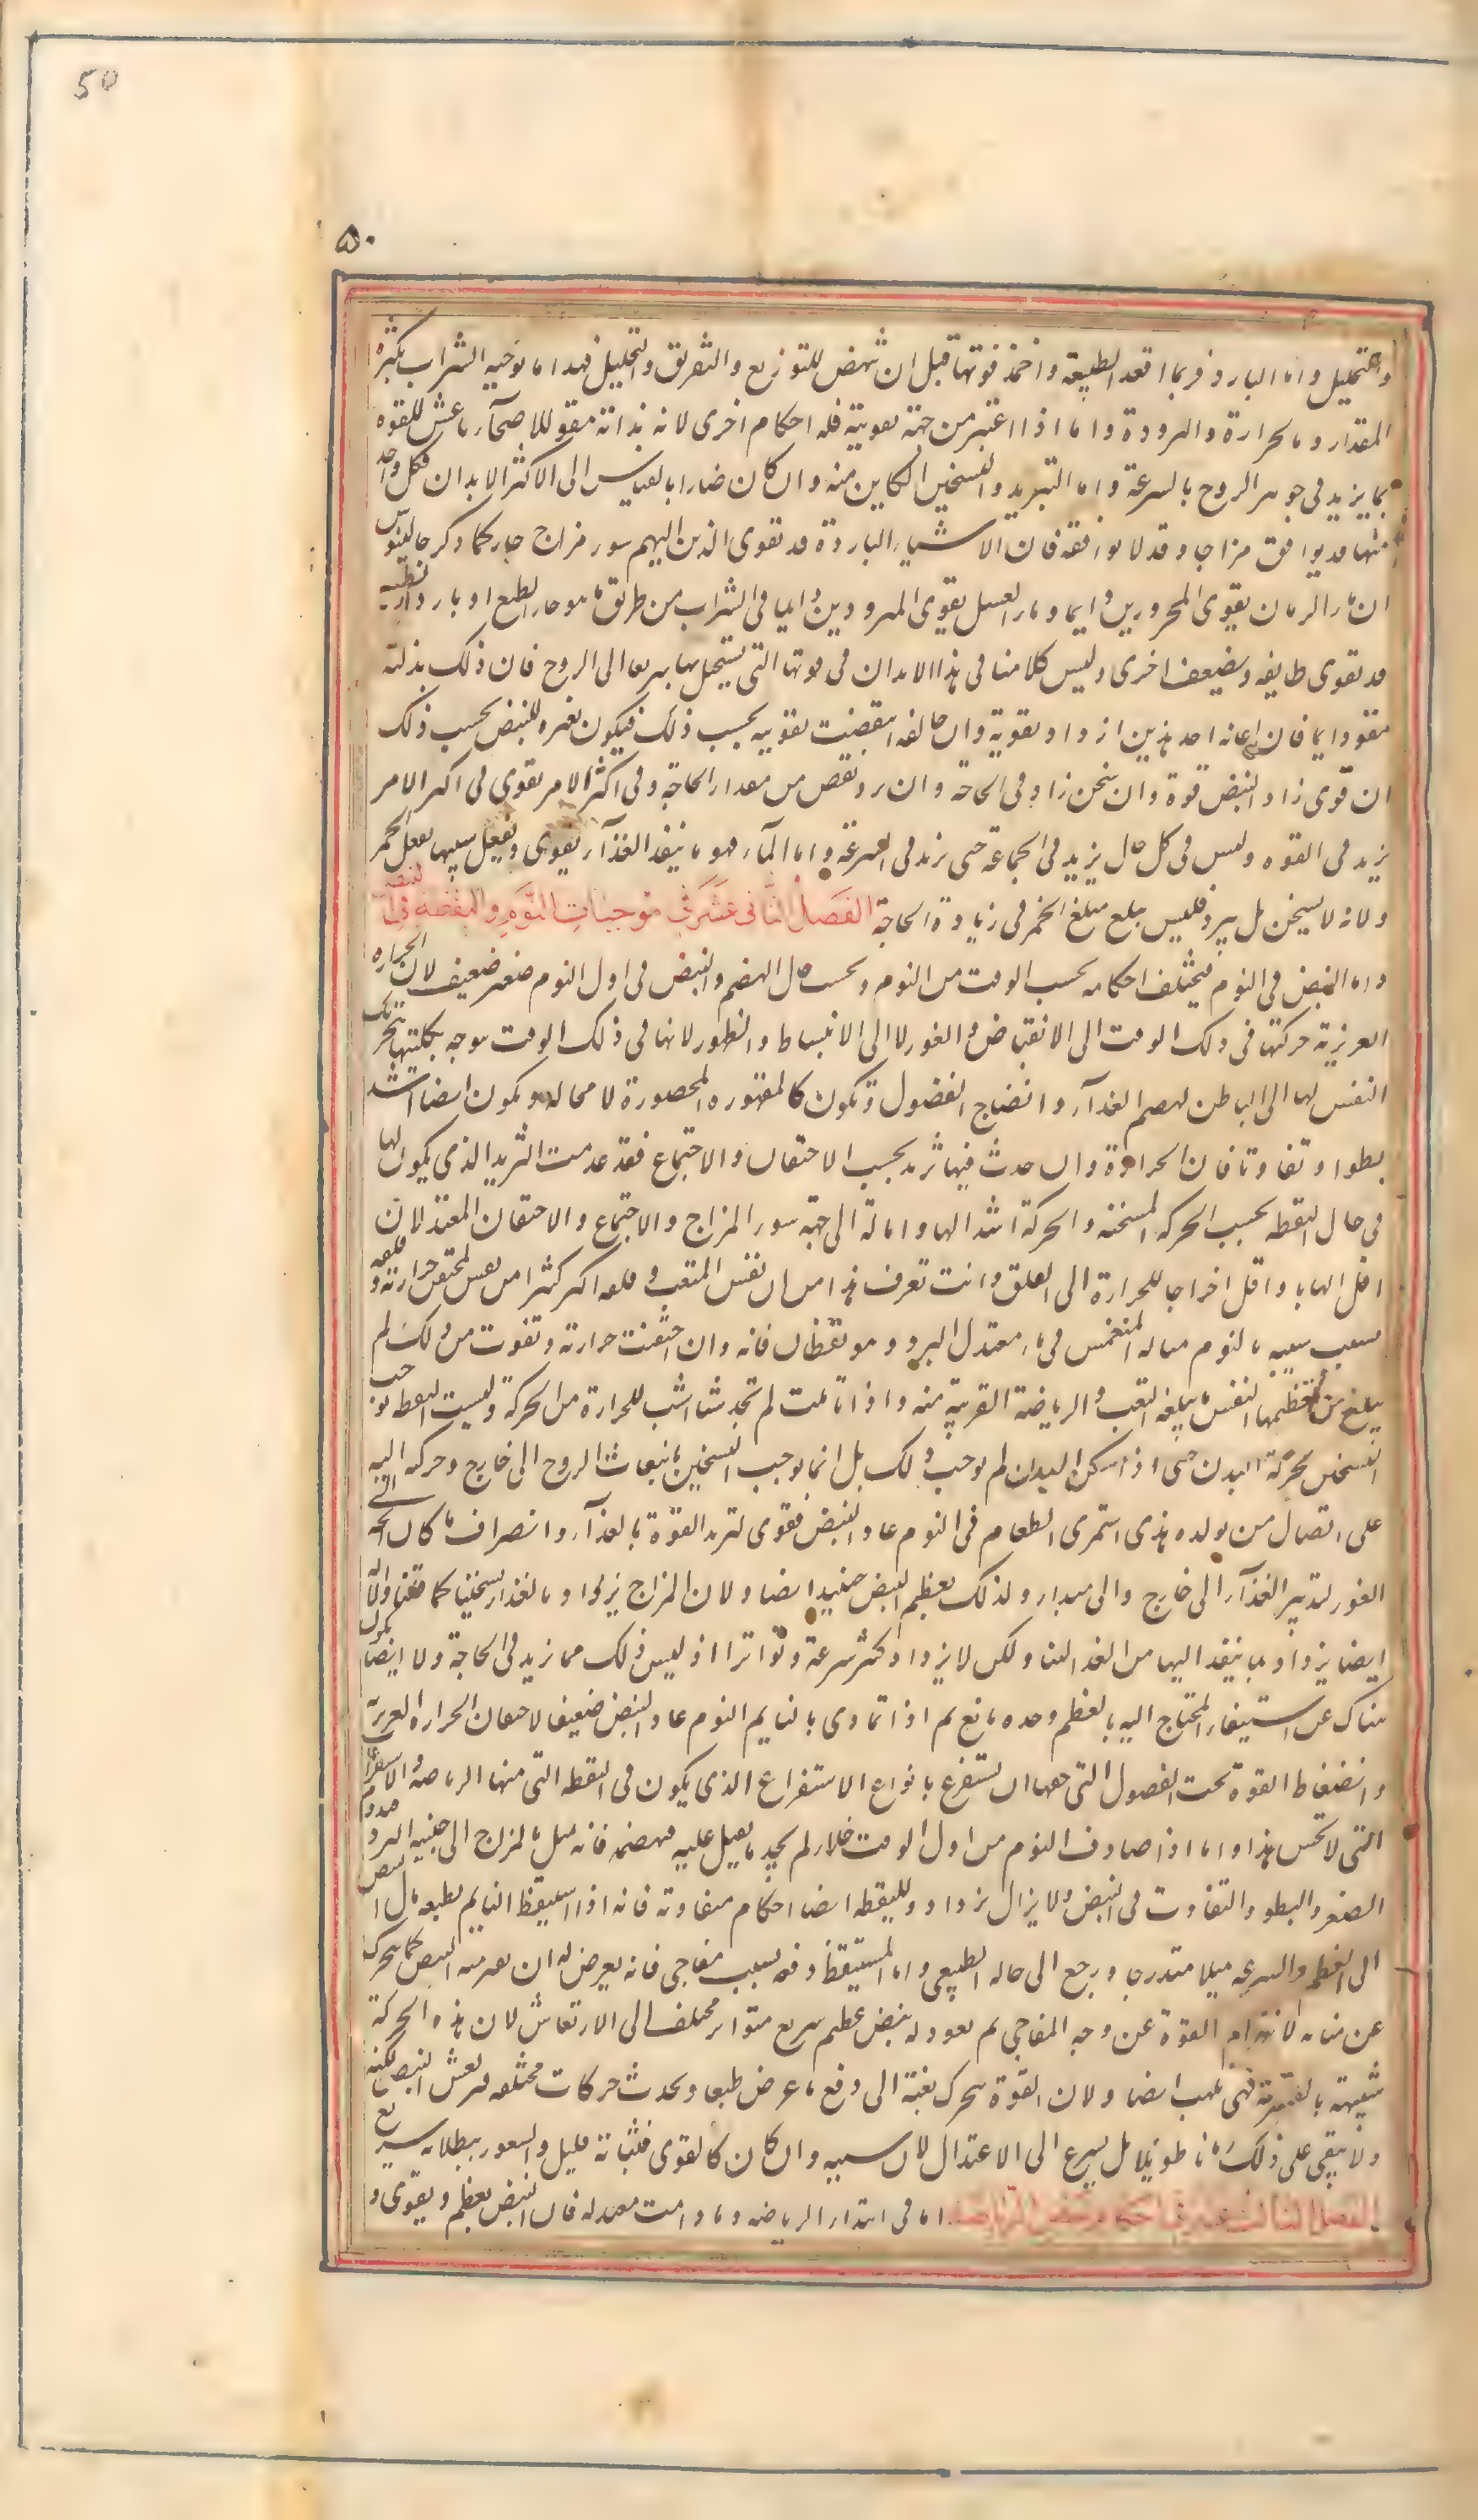 50
۵۰
والتحليل واما البارد فربما اقعد الطبيعة واخمذ قوتها قبل ان تنهض للتوزيع والتفريق والتحليل فهذا ما توجبه الشراب بكثرة
المقدار وبالحرارة والبرودة واما اذا اعتبر من جهة تقويته فله احكام اخرى لانه بذاته مقو للاصحآء ناعش للقوه
بما يزيد فى جوهر الروح بالسرعة واما التبريد والتسخين الكاين منه وان كان ضارا بالقياس الى الاكثر الابدان فكل واحد
منها قد يوافق مزاجا وقد لا يوافقه فان الاشياء الباردة قد تقوى الذين اليهم سور مزاج حار كما ذكر جالينوس
ان ماء الرمان يقوى المحرورين دايما وماء العسل يقوى المبرودين دايما فالشراب من طريق ما هو حار الطبع او بارد الطبع
قد تقوى طايفه ويضعف اخرى وليس كلامنا فى هذا الان بل فى قوتها التى يستحيل بها سريعا الى الروح فان ذلك بذاته
مقو دايما فان اعانه احد هذين ازداد تقوية وان خالفه انتقصت تقويته بحسب ذلك فيكون تغيره للنبض بحسب ذلك
ان قوى زاد النبض قوة وان سخن زاد فى الحاجة وان برد نقص من مقدار الحاجة وفى اكثر الامر يقوى فى اكثر الامر
يزيد فى القوه وليس فى كل حال يزيد فى الحاجة حتى يزيد فى السرعة واما المآء فهو بما ينفذ الغذآء يقوى ويفعل شبيها بفعل الخمر
ولانه لا يسخن بل يبرد فليس يبلغ مبلغ الخمر فى زيادة الحاجة الفَصلُ الثَّانى عَشَر فى موجبات النَّوم واليقظه فى النبض
واما النبض فى النوم فيختلف احكامه بحسب الوقت من النوم وبحسب حال الهضم والنبض فى اول النوم صغير ضعيف لان الحراره
الغريزية حركتها فى ذلك الوقت الى الانقباض والغور لا الى الانبساط والظهور لانها فى ذلك الوقت يتوجه بكليتها بتحريك
النفس لها الى الباطن لهضم الغذآء وانضاج الفضول وتكون كالمقهوره المحصورة لا محاله وتكون ايضا اشد
بطوا وتفاوتا فان الحرارة وان حدث فيها تزيد بحسب الاحتقان والاجتماع فقد عدمت التزيد الذى يكون لها
فى حال اليقظه بحسب الحركه المسخنه والحركة اشد الهابا وامالة الى جهة سوء المزاج والاجتماع والاحتقان المعتدلان
اقل الهابا واقل اخراجا للحرارة الى القلق وانت تعرف هذا من ان نفس المتعب وقلقه اكثر كثيرا من نفس المحتقن حرارته وقلقه
بسبب شبيه بالنوم مثاله المنغمس فى ماء معتدل البرد وهو يقظان فانه وان احتقنت حرارته وتقوت من ذلك لم
يبلغ من تعظيمها النفس ما يبلغه التعب والرياضة القريبة منه واذا تاملت لم تجد شيئا اشب للحرارة من الحركة وليست اليقظه توجب
التسخين بحركة البدن حتى اذا سكن البدن لم توجب ذلك بل انما توجب التسخين بانبعاث الروح الى خارج وحركه اليه
على اتصال من تولده هذا فاذا استمرى الطعام فى النوم عاد النبض فقوى لتزيد القوة بالغذآء وانصراف ما كان اتجه الى
الغور لتدبير الغذآء الى خارج والى مبداه ولذلك يعظم النبض حينئذ ايضا ولان المزاج يزداد بالغذاء تسخينا كما قلنا والآلة
ايضا يزداد بما ينفذ اليها من الغذا لينا ولكن لا يزداد كثير سرعة وتواترا اذ ليس ذلك مما يزيد فى الحاجة ولا ايضا يكون
هناك عن استيفاء المحتاج اليه بالعظم وحده مانع ثم اذا تمادى بالنايم النوم عاد النبض ضعيفا لاحتقان الحراره الغريزية
وانضغاط القوة تحت الفضول التى حقها ان تستفرغ بانواع الاستفراغ الذى يكون فى اليقظه التى منها الرياضه والاستفراغات
التى لا تحس هذا واما اذا صادف النوم من اول الوقت خلاء ولم يجد ما يقبل عليه فهضمه فانه يميل بالمزاج الى جنبيه البرد فيدوم
الصغر والبطو والتفاوت فى النبض ولا يزال يزداد ولليقظه ايضا احكام متفاوته فانه اذا استيقظ النايم بطبعه مال النبض
الى العظم والسرعه ميلا متدرجا ورجع الى حاله الطبيعى واما المستيقظ دفعه بسبب مفاجى فانه يعرض له ان يفتر منه النبض كما يتحرك
عن منامه لانهزام القوة عن وجه المفاجى ثم يعود له نبض عظيم سريع متواتر مختلف الى الارتعاش لان هذه الحركة
شبيهة بالقسرية فهى تلهب ايضا ولان القوة تتحرك بغتة الى دفع ما عرض طبعا وتحدث حركات مختلفه فيرتعش النبض لكنه
ولا يبقى على ذلك زمانا طويلا بل يسرع الى الاعتدال لان سببه وان كان كالقوى فثباته قليل والشعور ببطلانه سريع
الفصل الثالث عشر فى احكام نبض الرياضه اما فى ابتداء الرياضه وما دامت معتدله فان النبض يعظم ويقوى و